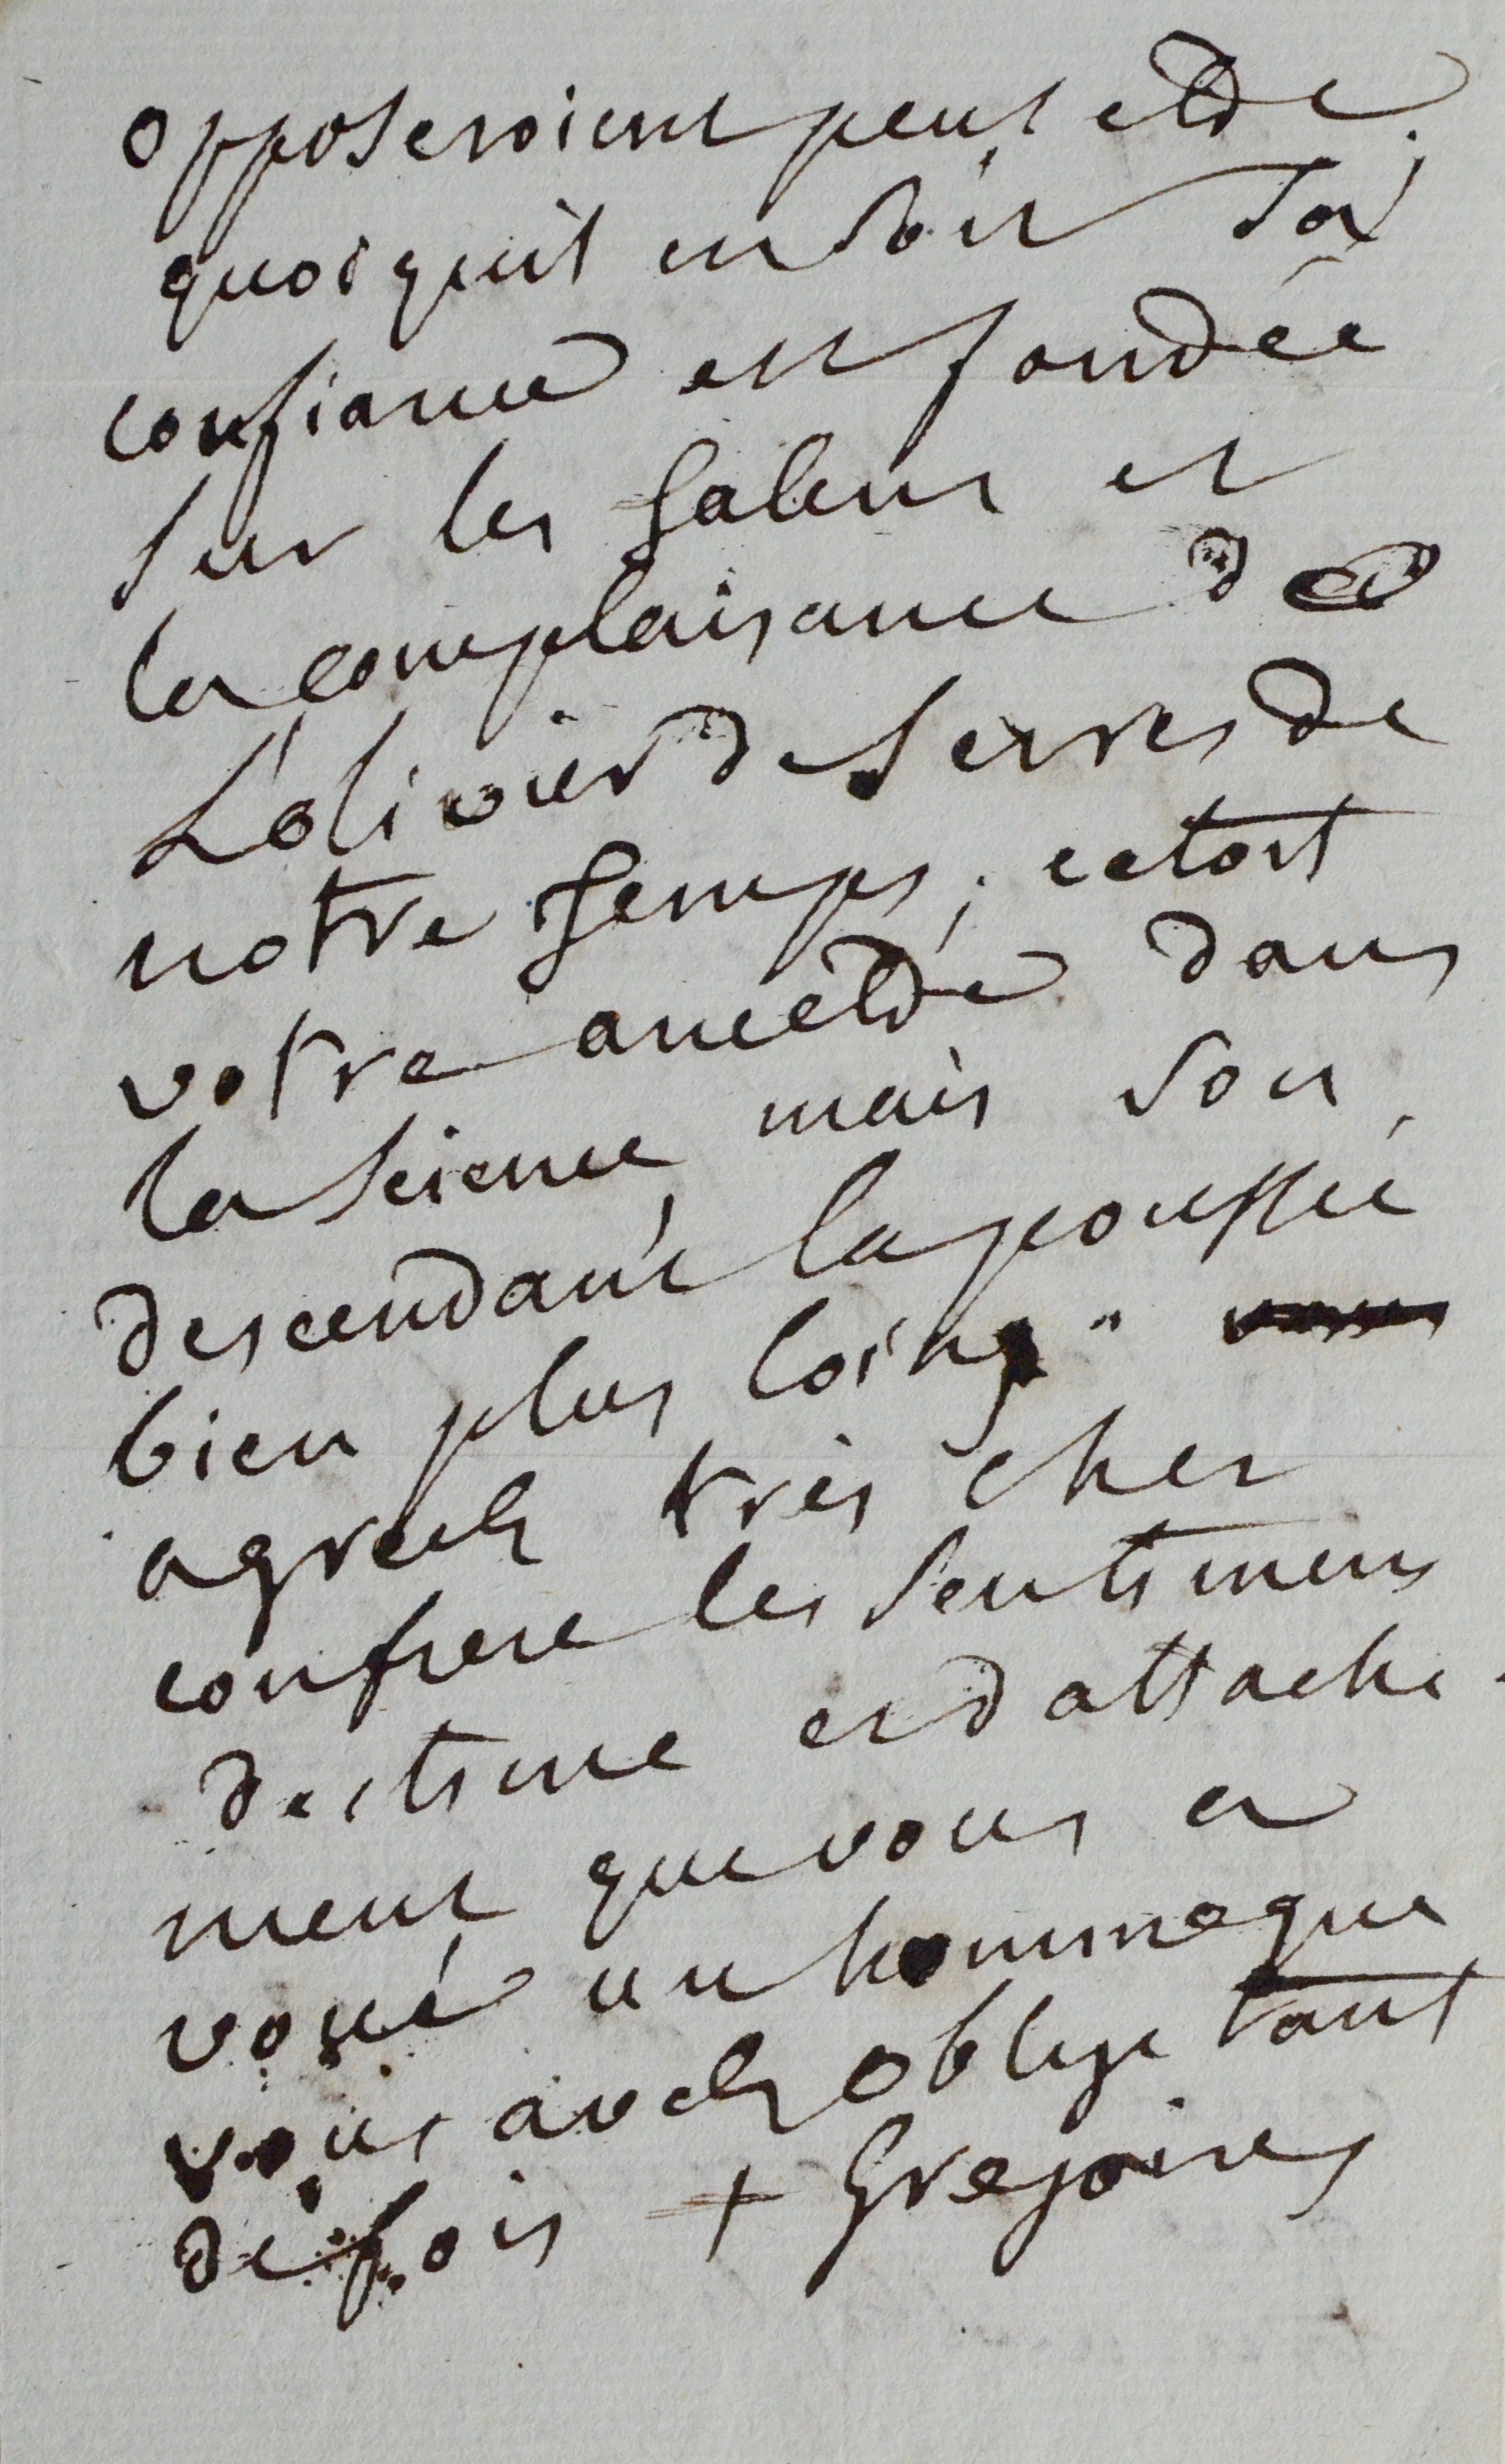 opposeroient peut etre.
quoiquil en soit sa
confiance est fondée
sur les talens et
la complaisance de
L'olivier de Serres de
notre temps ; cetoit
votre ancetre dans
la science mais son
descendant la poussée
bien plus loing.
agreez très cher
confrere les sentimens
destime et dattache-
ment que vous a
voué un homme que
vous avez obligé tant
de fois + Gregoire